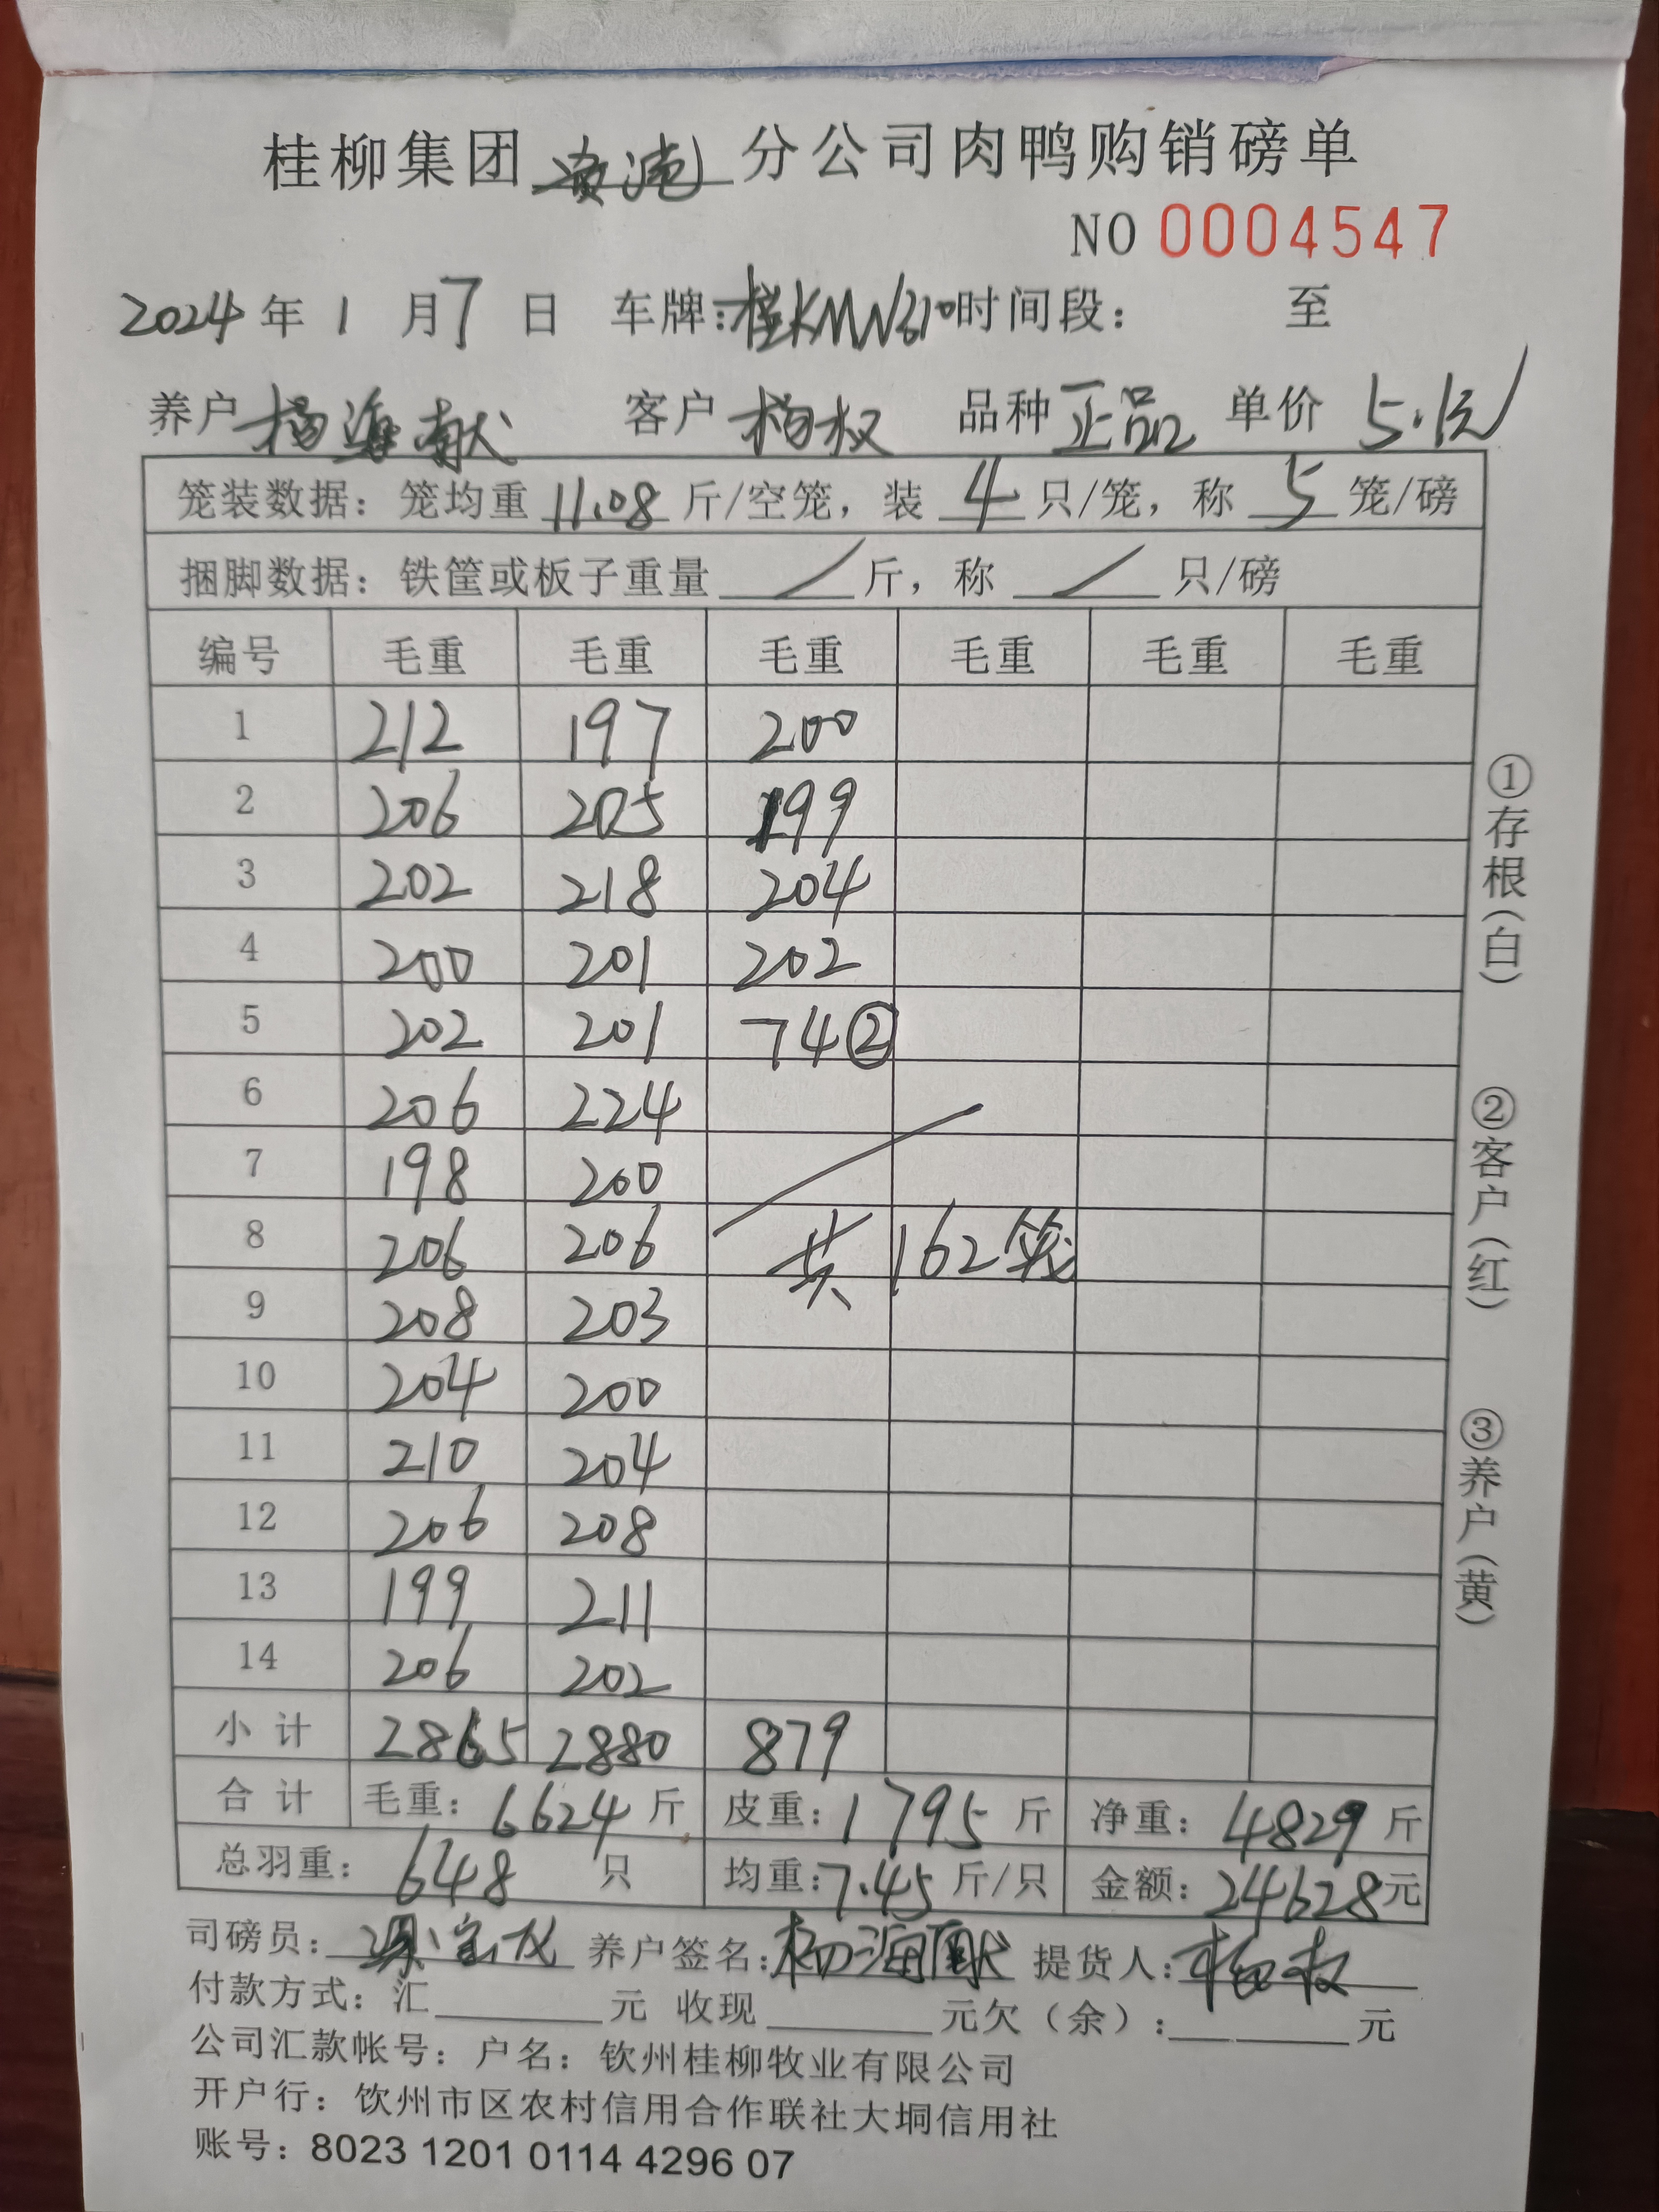 桂柳集团 分公司肉鸭购销磅单
NO 0004547
2024年1月7日 车牌:桂KMW610 时间段: 至
养户 杨海献 客户 杨权 品种 正品 单价 5.1元
笼装数据: 笼均重 11.08 斤/空笼, 装 4 只/笼, 称 5 笼/磅
捆脚数据: 铁筐或板子重量 / 斤, 称 / 只/磅
编号 毛重 毛重 毛重 毛重 毛重 毛重
1 212 197 200
2 206 205 199
3 202 218 204
4 200 201 202
5 202 201 74②
6 206 224
7 198 200
8 206 206 共162笼
9 208 203
10 204 200
11 210 204
12 206 208
13 199 211
14 206 202
小计 2865 2880 879
合计 毛重: 6624 斤 皮重: 1795 斤 净重: 4829 斤
总羽重: 648 只 均重: 7.45 斤/只 金额: 24628元
司磅员: 养户签名: 杨海献 提货人: 杨权
付款方式: 汇 元 收现 元欠(余): 元
公司汇款帐号: 户名: 钦州桂柳牧业有限公司
开户行: 钦州市区农村信用合作联社大垌信用社
账号: 8023 1201 0114 4296 07
①存根(白)
②客户(红)
③养户(黄)